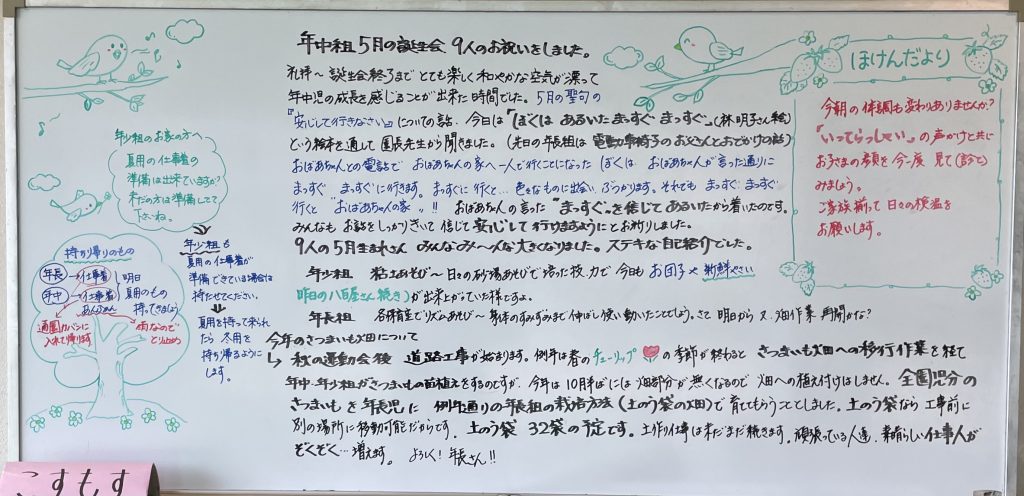 年中組 5月の誕生会 9人のお祝いをしました。
礼拝～誕生会終了まで とても楽しく和やかな空気が漂って
年中児の成長を感じることが出来た時間でした。5月の聖句の
『安心して行きなさい』についての話、今日は「ぼくは あるいた まっすぐ まっすぐ」(林明子さん絵)
という絵本を通して 園長先生から聞きました。(先日の年長組は 電動車椅子のお父さんとおでかけの話)
おばあちゃんとの電話で おばあちゃんの家へ一人で行くことになった ぼくは おばあちゃんが言った通りに
まっすぐ まっすぐに行きます。まっすぐに行くと… 色々なものに出会い、ぶつかります。それでも まっすぐ まっすぐ
行くと "おばあちゃんの家"!! おばあちゃんの言った "まっすぐ"を信じて あるいたから着いたのです。
みんなも お話をしっかりきいて 信じて 安心して 行けますようにとお祈りしました。
9人の5月生まれさん みんなみ～んな大きくなりました。ステキな自己紹介でした。
年少組 粘土あそび～日々の砂場あそびで培った技、力で 今日も お団子や 新鮮やさい
昨日の八百屋さん続き)が出来上がっていた様ですよ。
年長組 各保育室でリズムあそび～身体のすみずみまで伸ばし使い動いたことでしょう。さて 明日から 又 畑作業 再開かな?
今年のさつまいも畑について
↳ 秋の運動会後 道路工事が始まります。例年は春のチューリップの季節が終わると さつまいも畑への移行作業を経て
年中・年少組がさつまいもの苗植えをするのですが、今年は10月半ばには 畑部分が無くなるので 畑への植え付けはしません。全園児分の
さつまいもを年長児に 例年通りの年長組の栽培方法(土のう袋の畑)で育ててもらうことにしました。土のう袋なら 工事前に
別の場所に移動可能だからです。土のう袋 32袋の予定です。土作り仕事は まだまだ続きます。頑張っている人達、素晴らしい仕事人が
ぞくぞく… 増えます。 よろしく! 年長さん!!
年少組のお家の方へ
夏用の仕事着の
準備は出来ていますか?
まだの方は準備してて
下さいね。
年少組も
夏用の仕事着が
準備できている場合は
持たせてください。
↓
夏用を持って来られ
たら 冬用を
持ち帰るように
します。
持ち帰りのもの
年長 → 仕事着
年中 → 仕事着
明日
夏用のもの
持ってきましょう
通園カバンに
入れて帰ります
雨なので
ほけんだより
今朝の体調も変わりありませんか?
「いってらっしゃい」の声かけと共に
お子さまの顔を今一度 見て(診て)
みましょう。
ご家族揃って 日々の検温を
お願いします。
こすもす